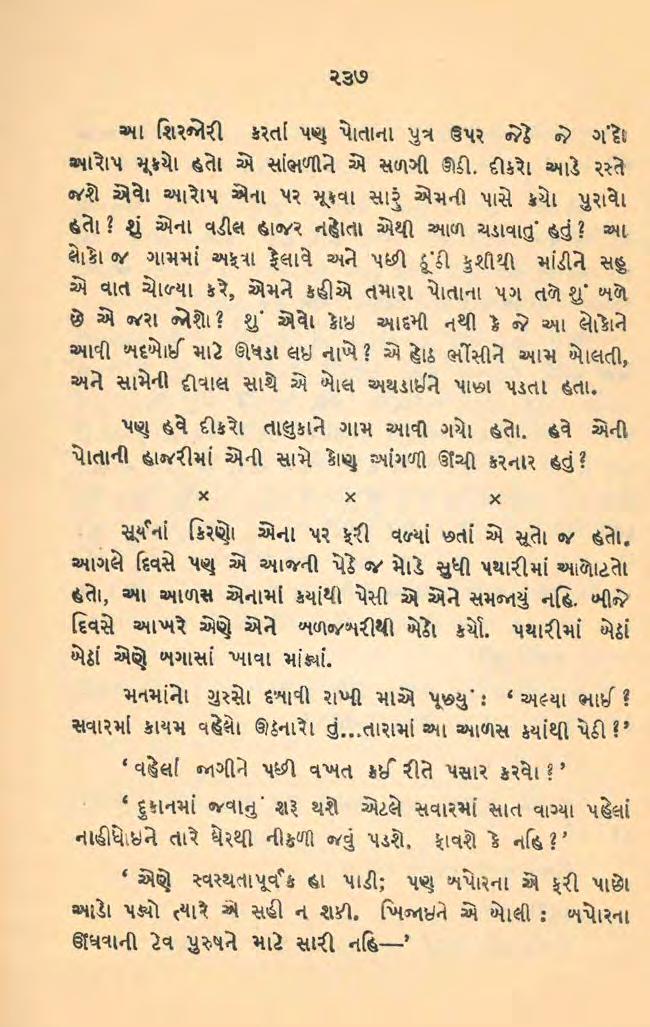 ૨૩૭
આ શિરજોરી કરતાં પણ પોતાના પુત્ર ઉપર જેઠે જે ગંદો
આરોપ મૂકયો હતો એ સાંભળીને એ સળગી ઊઠી. દીકરો આડે રસ્તે
જશે એવો આરોપ એના પર મૂકવા સારું એમની પાસે કયો પુરાવો
હતો? શું એના વડીલ હાજર નહોતા એથી આળ ચડાવાતું હતું? આ
લોકો જ ગામમાં અફવા ફેલાવે અને પછી દૂંઠી કુશીથી માંડીને સહુ
એ વાત ચોળ્યા કરે, એમને કહીએ તમારા પોતાના પગ તળે શું બળે
છે એ જરા જોશો? શું એવો કોઇ આદમી નથી કે જે આ લોકોને
આવી બદબોઈ માટે ઊધડા લઇ નાખે? એ હોઠ ભીંસીને આમ બોલતી,
અને સામેની દીવાલ સાથે એ બોલ અથડાઈને પાછા પડતા હતા.
પણ હવે દીકરો તાલુકાને ગામ આવી ગયો હતો. હવે એની
પોતાની હાજરીમાં એની સામે કોણ આંગળી ઊંચી કરનાર હતું?
× × ×
સૂર્યનાં કિરણો એના પર ફરી વળ્યાં છતાં એ સૂતો જ હતો.
આગલે દિવસે પણ એ આજની પેઠે જ મોડે સુધી પથારીમાં આળોટતો
હતો, આ આળસ એનામાં કયાંથી પેસી એ એને સમજાયું નહિ. બીજે
દિવસે આખરે એણે એને બળજબરીથી બેઠો કર્યો. પથારીમાં બેઠાં
બેઠાં એણે બગાસાં ખાવા માંડ્યાં.
મનમાંનો ગુસ્સો દબાવી રાખી માએ પૂછયું : ‘ અલ્યા ભાઈ !
સવારમાં કાયમ વહેલો ઊઠનારો તું...તારામાં આ આળસ કયાંથી પેઠી !’
‘ વહેલાં જાગીને પછી વખત કઈ રીતે પસાર કરવો !’
‘ દુકાનમાં જવાનું શરૂ થશે એટલે સવારમાં સાત વાગ્યા પહેલાં
નાહીધોઇને તારે ઘેરથી નીકળી જવું પડશે. ફાવશે કે નહિ ?’
‘ એણે સ્વસ્થતાપૂર્વક હા પાડી; પણ બપોરના એ ફરી પાછો
આડો પડ્યો ત્યારે એ સહી ન શકી. ખિજાઇને એ બોલી : બપોરના
ઊંઘવાની ટેવ પુરુષને માટે સારી નહિ—’